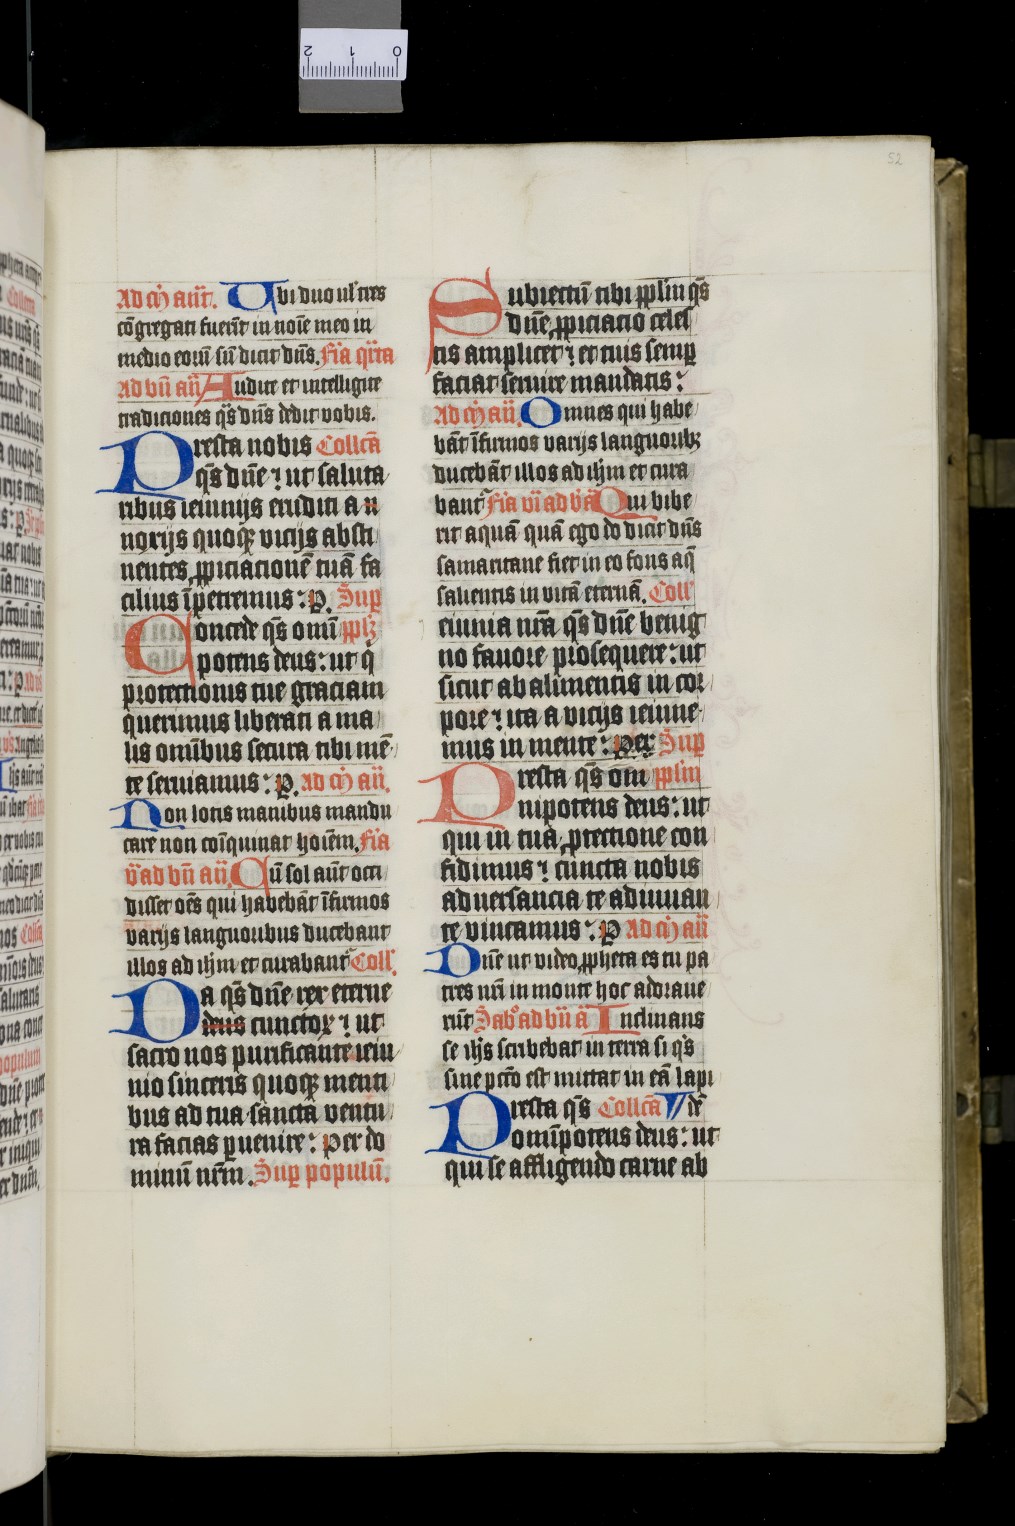 52
Ad m̄ añt. Vbi duo ul' tres
cōgregati fuerīt in noīe meo in
medio eorū sū dicit dn̄s. Fīa qr̄ta
ad bn̄ añ Audite et intelligite
tradiciones q̄s dn̄s dedit vobis.
Presta nobis Collcā
q̄s dn̄e ⁊ ut saluta
ribus ieiunijs eruditi a n
noxijs quoqꝫ vicijs absti
nentes ꝓpiciacionē tuā fa
cilius īpetremus : P. Sup̄
Concede q̄s omī pplꝫ
potens deus : ut q̄
protectionis tue graciam
querimus liberati a ma
lis omībus secura tibi mē
te seruiamus : P. Ad m̄ añ.
Non lotis manibus mandu
care non coīquinat hoiēm. Fīa
v̄ ad bn̄ añ. Cū sol aūt occi
disset oēs qui habebāt īfirmos
varijs languoribus ducebant
illos ad ih̄m et curabant᷑ Coll'.
Da q̄s dn̄e rex eterne
deus cunctoꝝ ⁊ ut
sacro nos purificante ieiu
nio sinceris quoqꝫ menti
bus ad tua sancta ventu
ra facias ꝑuenire : Per do
minū nr̄m. Sup̄ populū.
Subiectū tibi pplm q̄s
dn̄e ꝓpiciacio celes
tis amplicet ⁊ et tuis semꝑ
faciat seruire mandatis :
Ad m̄ añ. Omnes qui habe
bāt īfirmos varijs languoribꝫ
ducebāt illos ad ih̄m et cura
bant᷑ Fīa vī ad b̄ ā Qui bibe
rit aquā quā ego do dicit dn̄s
samaritane fiet in eo fons aq̄
salientis in vitā eternā. Coll'
eiunia nr̄a q̄s dn̄e benig
no fauore prosequere : ut
sicut ab alimentis in cor
pore ⁊ ita a vicijs ieiune
mus in mente : Per Sup̄
Presta q̄s om pplm
nipotens deus : ut
qui in tua ꝓtectione con
fidimus ⁊ cuncta nobis
aduersancia te adiuuan
te vincamus : P Ad m̄ añ
Dn̄e ut video ꝓpheta es tu pa
tres nr̄i in monte hoc adoraue
rūt Sab̄o ad bn̄ ā Inclinans
se ih̄s scribebat in terra si q̄s
sine pctō est mittat in eā lapi
Presta q̄s Collcā dē
omīpotens deus : ut
qui se affligendo carne ab